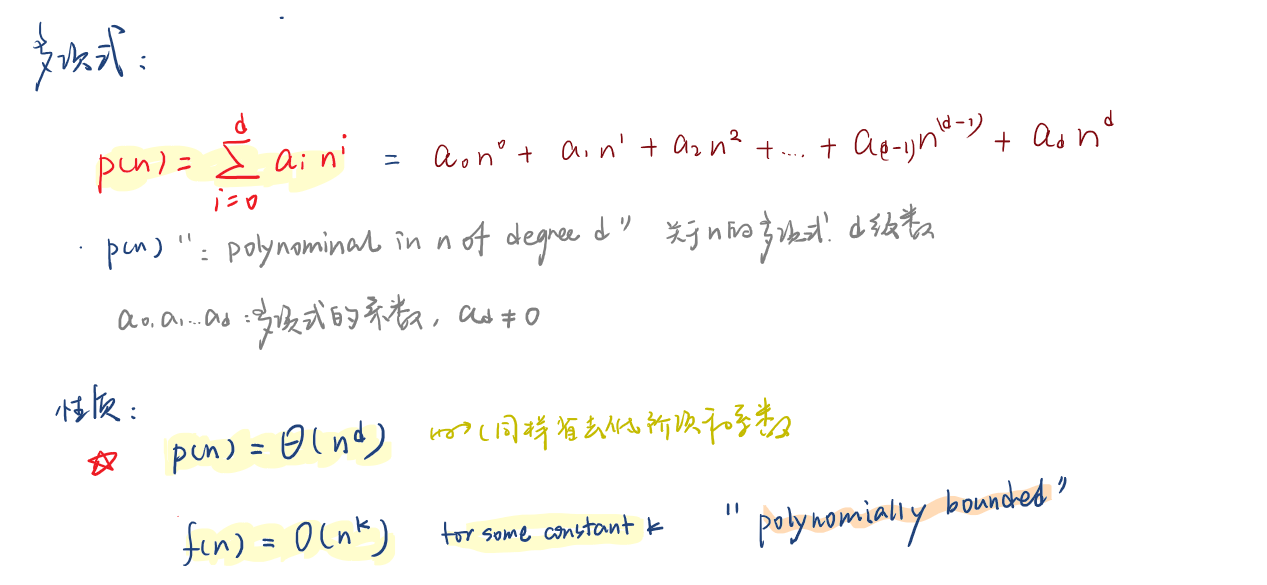 多项式：
p(n) = ∑_{i=0}^{d} aᵢ nⁱ = a₀n⁰ + a₁n¹ + a₂n² + .... + a₍d-1₎n^(d-1) + a_d n^d
· p(n) ": polynominal in n of degree d" 关于n的多项式. d级数
a₀.a₁...a_d : 多项式的系数, a_d ≠ 0
性质：
☆ p(n) = Θ(n^d) (同样省去低阶项和系数
f(n) = O(n^k) for some constant k "polynomially bounded"